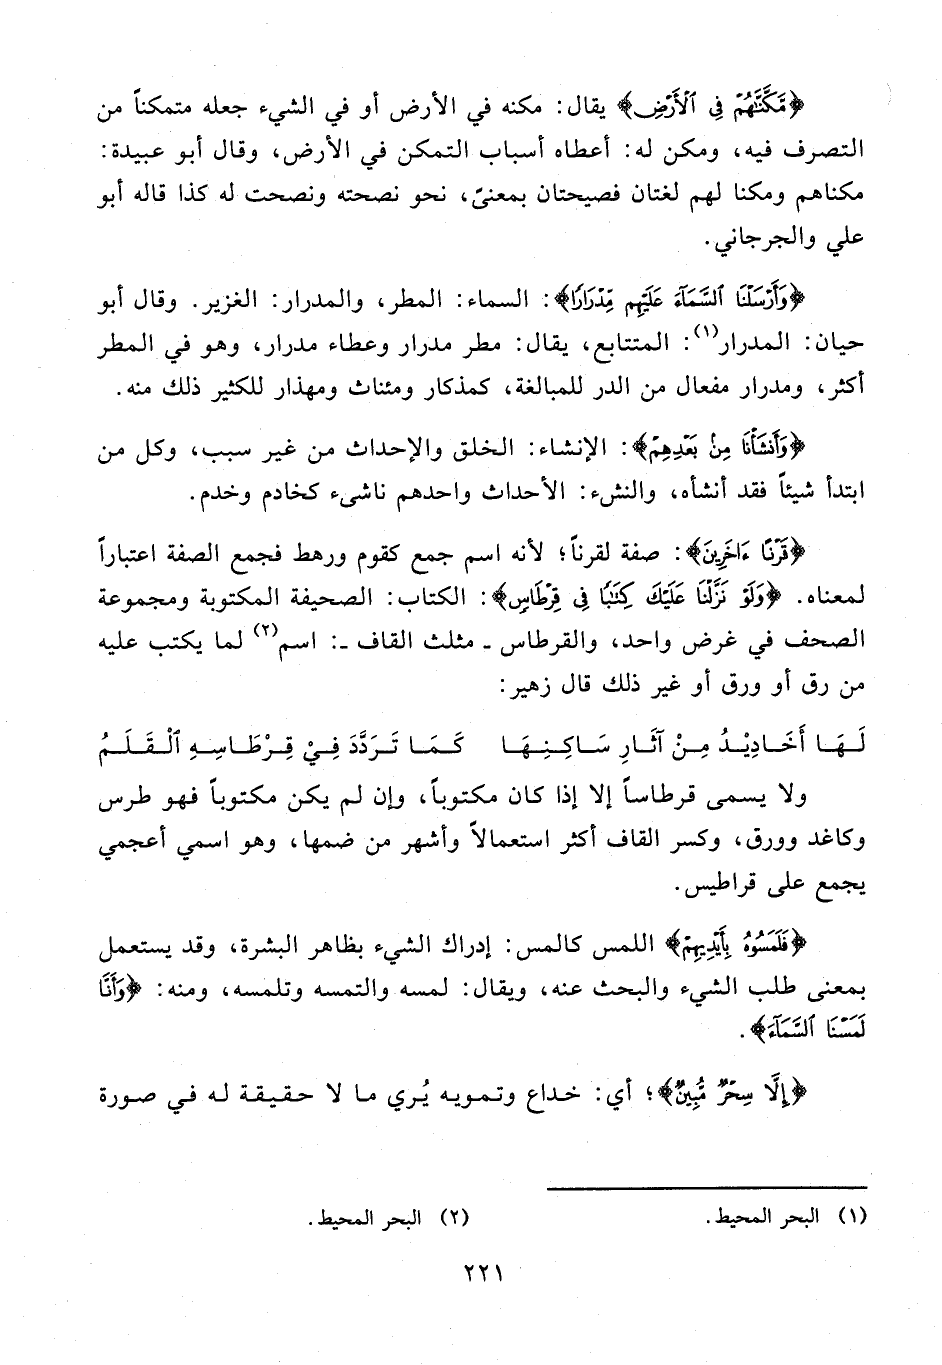 ﴿مَّكَّنَّٰهُمْ فِى ٱلْأَرْضِ﴾ يقال: مكنه في الأرض أو في الشيء جعله متمكناً من
التصرف فيه، ومكن له: أعطاه أسباب التمكن في الأرض، وقال أبو عبيدة:
مكناهم ومكنا لهم لغتان فصيحتان بمعنىً، نحو نصحته ونصحت له كذا قاله أبو
علي والجرجاني.
﴿وَأَرْسَلْنَا ٱلسَّمَآءَ عَلَيْهِم مِّدْرَارًا﴾: السماء: المطر، والمدرار: الغزير. وقال أبو
حيان: المدرار(١): المتتابع، يقال: مطر مدرار وعطاء مدرار، وهو في المطر
أكثر، ومدرار مفعال من الدر للمبالغة، كمذكار ومئناث ومهذار للكثير ذلك منه.
﴿وَأَنشَأْنَا مِنۢ بَعْدِهِمْ﴾: الإنشاء: الخلق والإحداث من غير سبب، وكل من
ابتدأ شيئاً فقد أنشأه، والنشء: الأحداث واحدهم ناشىء كخادم وخدم.
﴿قَرْنًا ءَاخَرِينَ﴾: صفة لقرناً؛ لأنه اسم جمع كقوم ورهط فجمع الصفة اعتباراً
لمعناه. ﴿وَلَوْ نَزَّلْنَا عَلَيْكَ كِتَٰبًا فِى قِرْطَاسٍ﴾: الكتاب: الصحيفة المكتوبة ومجموعة
الصحف في غرض واحد، والقرطاس ـ مثلث القاف ـ: اسم(٢) لما يكتب عليه
من رق أو ورق أو غير ذلك قال زهير:
لَـهَـا أَخَـادِيْـدُ مِـنْ آثَـارِ سَـاكِـنِـهَـا كَـمَـا تَـرَدَّدَ فِـيْ قِـرْطَـاسِـهِ ٱلْـقَـلَـمُ
ولا يسمى قرطاساً إلا إذا كان مكتوباً، وإن لم يكن مكتوباً فهو طرس
وكاغد وورق، وكسر القاف أكثر استعمالاً وأشهر من ضمها، وهو اسمي أعجمي
يجمع على قراطيس.
﴿فَلَمَسُوهُ بِأَيْدِيهِمْ﴾ اللمس كالمس: إدراك الشيء بظاهر البشرة، وقد يستعمل
بمعنى طلب الشيء والبحث عنه، ويقال: لمسه والتمسه وتلمسه، ومنه: ﴿وَأَنَّا
لَمَسْنَا ٱلسَّمَآءَ﴾.
﴿إِلَّا سِحْرٌ مُّبِينٌ﴾؛ أي: خداع وتمويه يُري ما لا حقيقة له في صورة
(١) البحر المحيط. (٢) البحر المحيط.
٢٢١